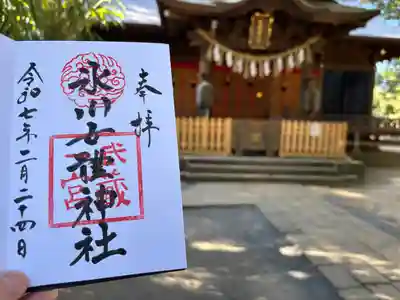 奉拝
氷川女體神社
武蔵
一宮
令和七年二月二十四日